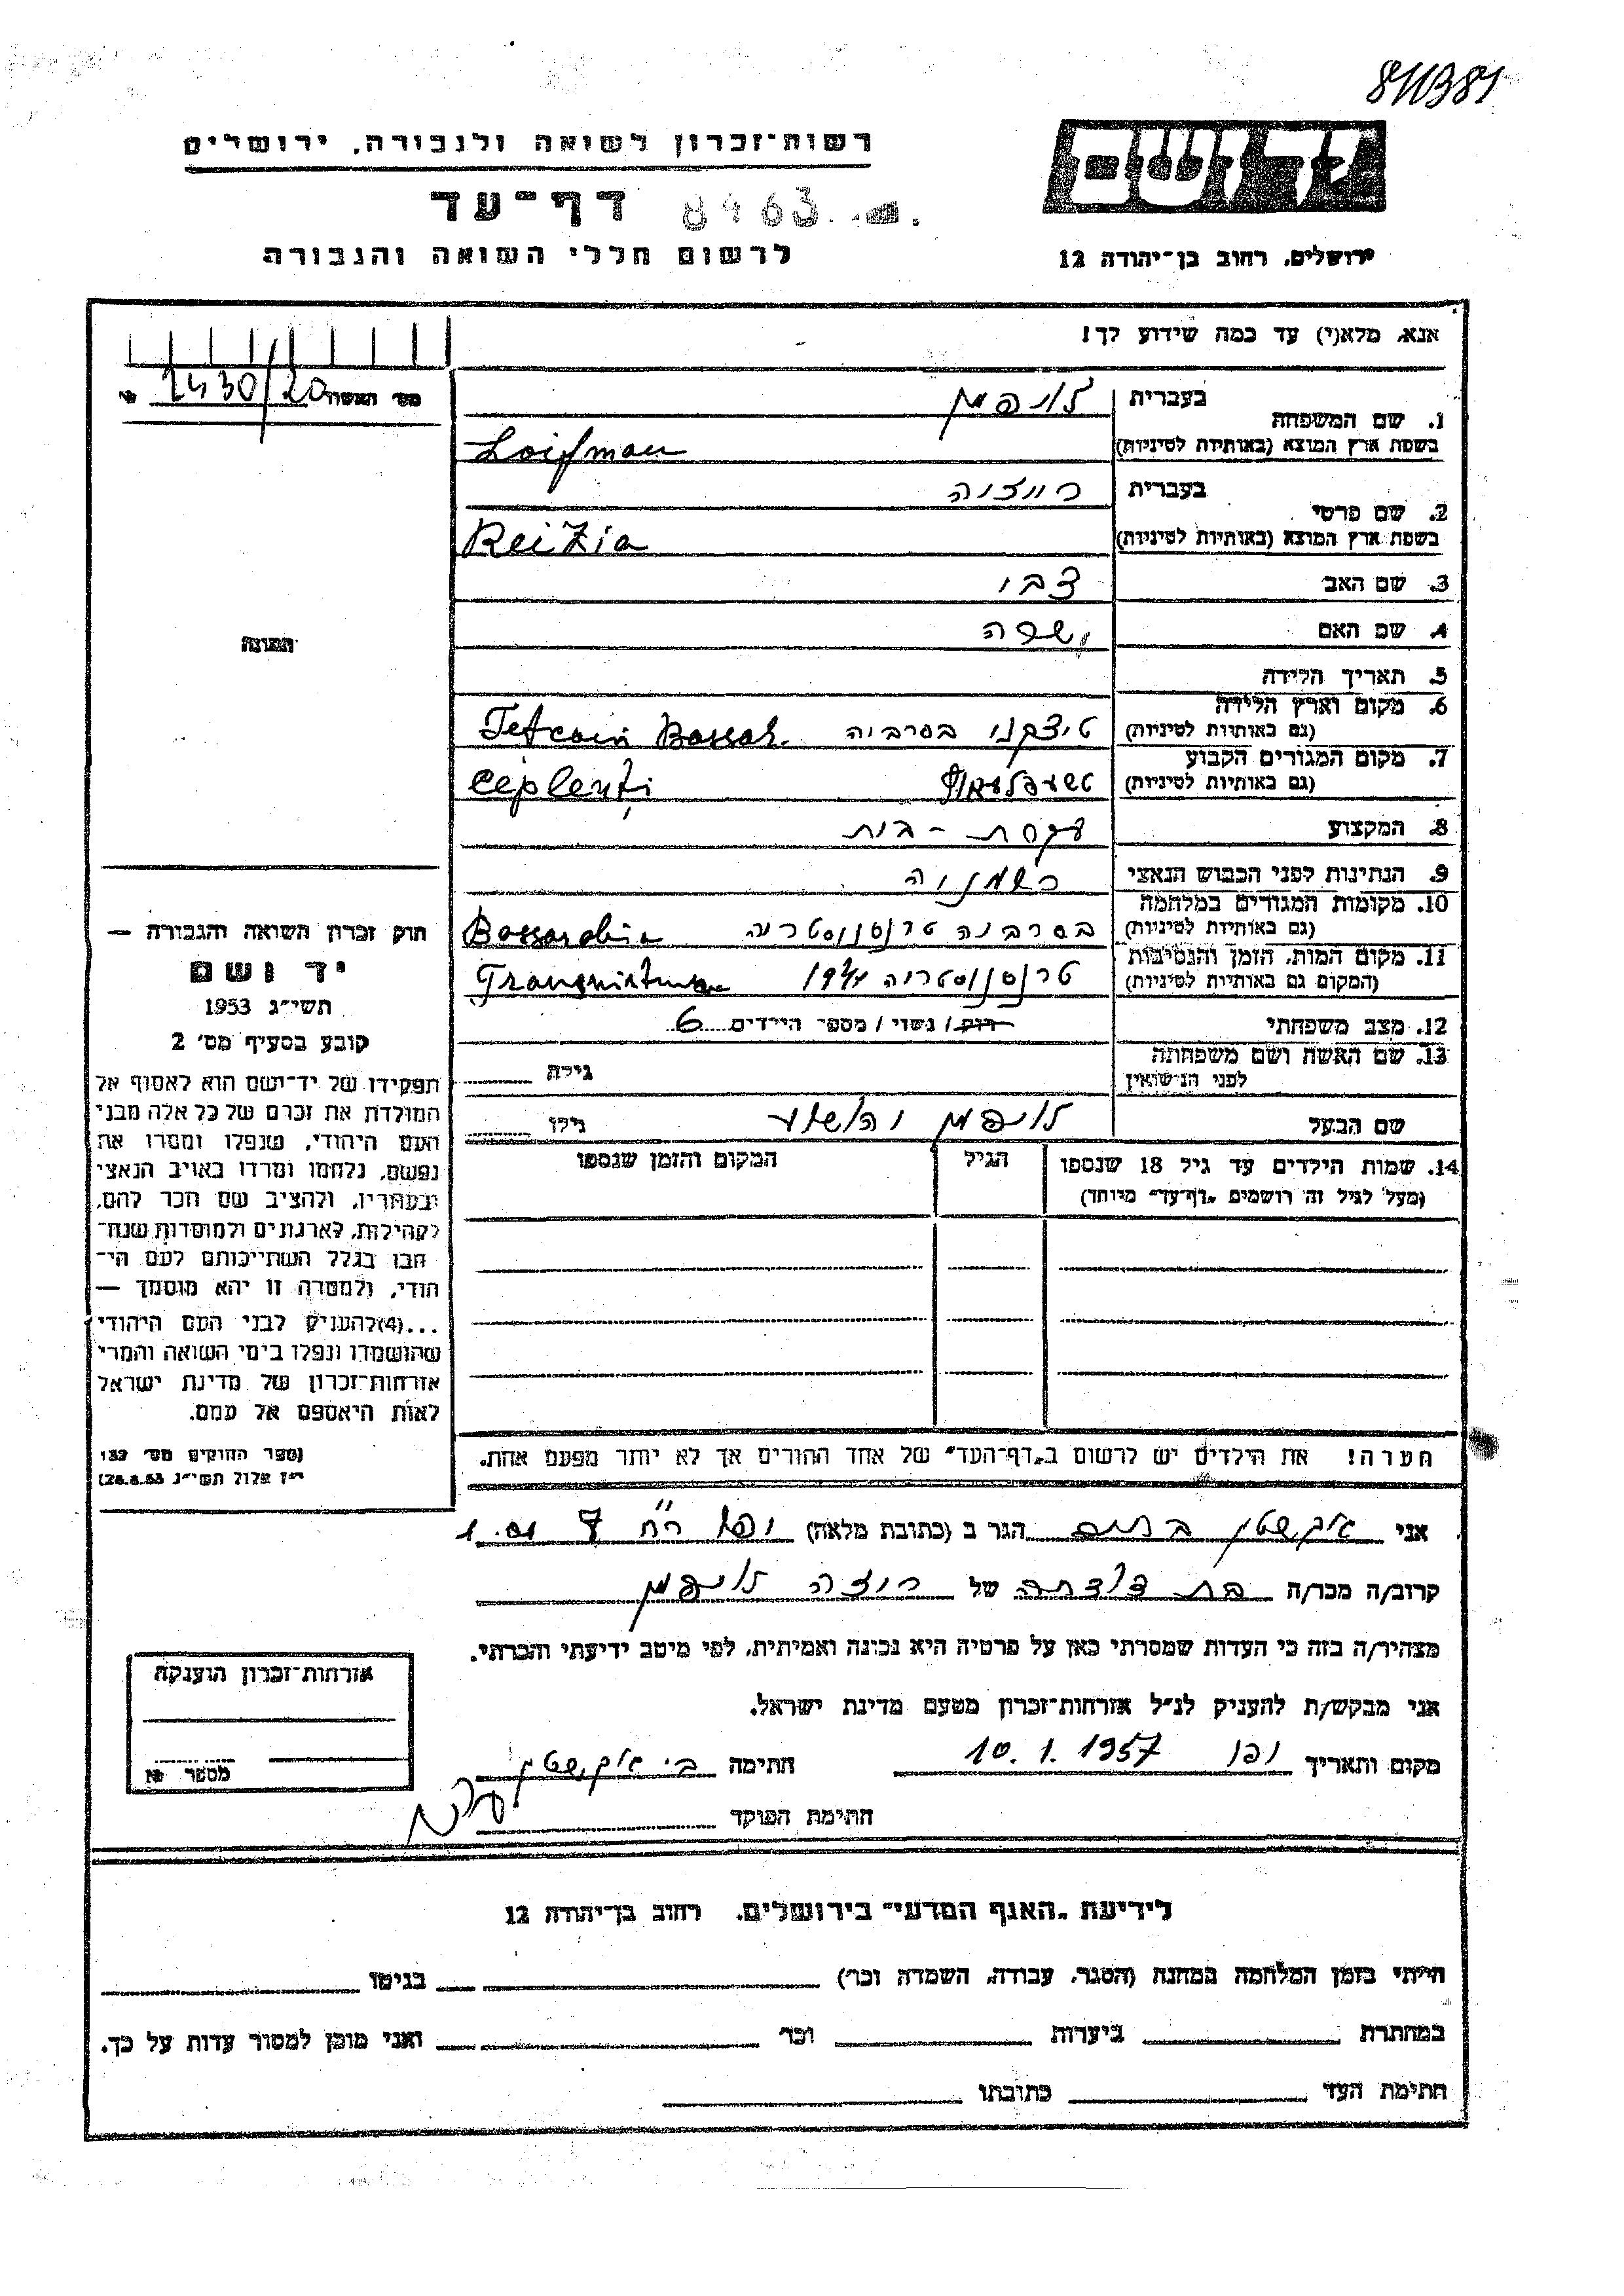 811381
רשות־זכרון לשואה ולגבורה, ירושלים
דף־עד
8963
לרשום חללי השואה והגבורה
יד ושם
ירושלים, רחוב בן־יהודה 12
אנא, מלא(י) עד כמה שידוע לך!
1. שם המשפחה
בעברית לויפמן
בשפת ארץ המוצא (באותיות לטיניות) Loifman
2. שם פרטי
בעברית רייזיה
בשפת ארץ המוצא (באותיות לטיניות) ReiZia
3. שם האב צבי
4. שם האם שרה
5. תאריך הלידה
6. מקום וארץ הלידה
(גם באותיות לטיניות) טיצקני בסרביה
7. מקום המגורים הקבוע
(גם באותיות לטיניות) Ceplenți
8. המקצוע עקרת - בית
9. הנתינות לפני הכבוש הנאצי רומניה
10. מקומות המגורים במלחמה
(גם באותיות לטיניות) בסרביה טרנסניסטריה Bassarabia
11. מקום המות, הזמן והנסיבות
(המקום גם באותיות לטיניות) טרנסניסטריה 1941
12. מצב משפחתי רוק / נשוי / מספר הילדים 6
13. שם האשה ושם משפחתה
לפני הנישואין גילה
שם הבעל לויפמן יהושע גילו
14. שמות הילדים עד גיל 18 שנספו
(מעל לגיל זה רושמים „דף־עד" מיוחד)
הגיל
המקום והזמן שנספו
הערה! את הילדים יש לרשום ב„דף־העד" של אחד ההורים אך לא יותר מפעם אחת.
מס׳ האשה 2430/20
תמונה
חוק זכרון השואה והגבורה —
יד ושם
תשי״ג 1953
קובע בסעיף מס׳ 2
תפקידו של יד־ושם הוא לאסוף אל
המולדת את זכרם של כל אלה מבני
העם היהודי, שנפלו ומסרו את
נפשם, נלחמו ומרדו באויב הנאצי
ובעוזריו, ולהציב שם וזכר להם,
לקהילות, לארגונים ולמוסדות שנח־
רבו בגלל השתייכותם לעם הי־
הודי, ולמטרה זו יהא מוסמך —
...(4)להעניק לבני העם היהודי
שהושמדו ונפלו בימי השואה והמרי
אזרחות־זכרון של מדינת ישראל
לאות היאספם אל עמם.
(ספר החוקים מס׳ 132
י״ז אלול תשי״ג 28.8.53)
אני הגר ב (כתובת מלאה) יפו
קרוב/ה מכר/ה של רוזה לויפמן
מצהיר/ה בזה כי העדות שמסרתי כאן על פרטיה היא נכונה ואמיתית, לפי מיטב ידיעתי והכרתי.
אני מבקש/ת להעניק לנ״ל אזרחות־זכרון מטעם מדינת ישראל.
מקום ותאריך יפו 10.1.1957 חתימה
חתימת הפוקד
אזרחות־זכרון הוענקה
מספר
לידיעת „האגף המדעי" בירושלים, רחוב בן־יהודה 12
הייתי בזמן המלחמה במחנה (הסגר, עבודה, השמדה וכו׳) בגיטו
במחתרת ביערות וכו׳ ואני מוכן למסור עדות על כך.
חתימת העד כתובתו